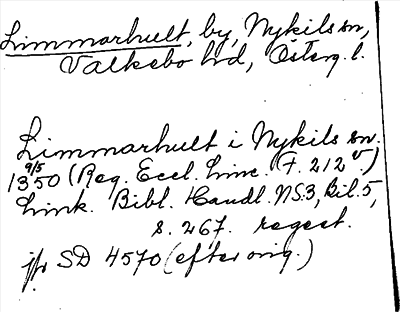 Limmarhult, by, Nykils sn,
Valkebo hd, Österg. l.
Limmarhult i Nykils sn.
9/5
1350 (Reg. Eccl. Linc. (F. 212 v.)
Link. Bibl. Handl. NS3, Bil. 5,
s. 267. regest.
jfr SD 4570 (efter orig.)